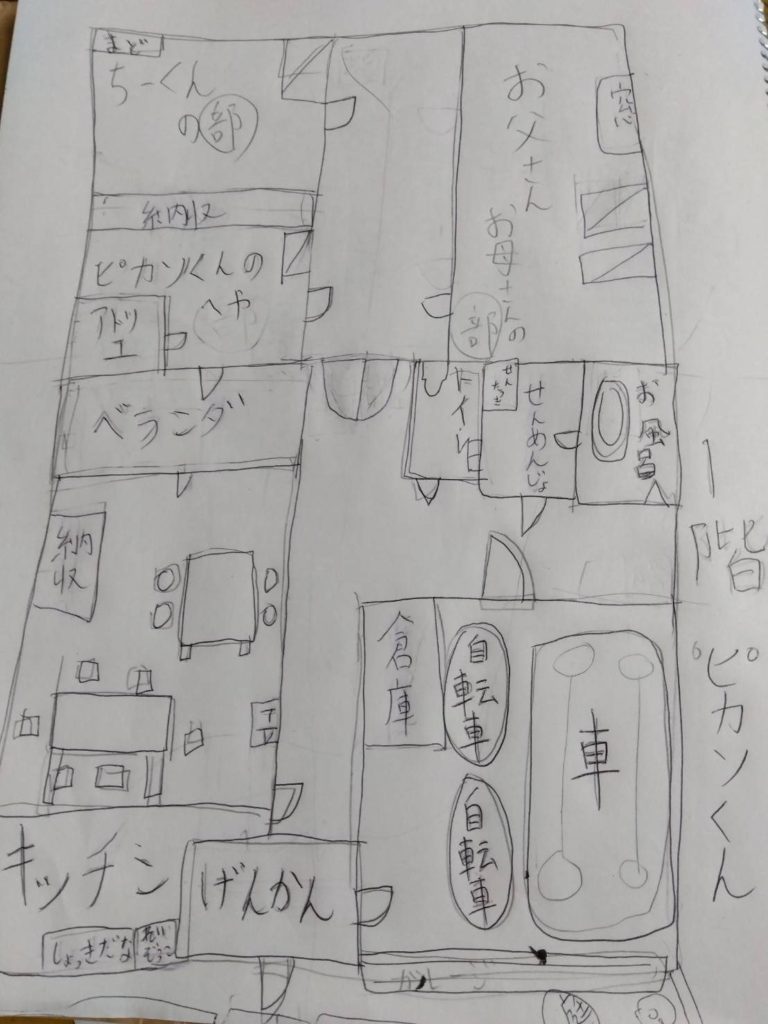 まど
ちーくん
の部
納収
ピカソくんの
へや
アトリ
エ
ベランダ
お父さん
お母さんの
部
窓
トイレ
せんめんじょ
お風呂
1階
ピカソくん
納
収
倉庫
自転車
自転車
車
キッチン
げんかん
しょっきだな
れい
ぞうこ